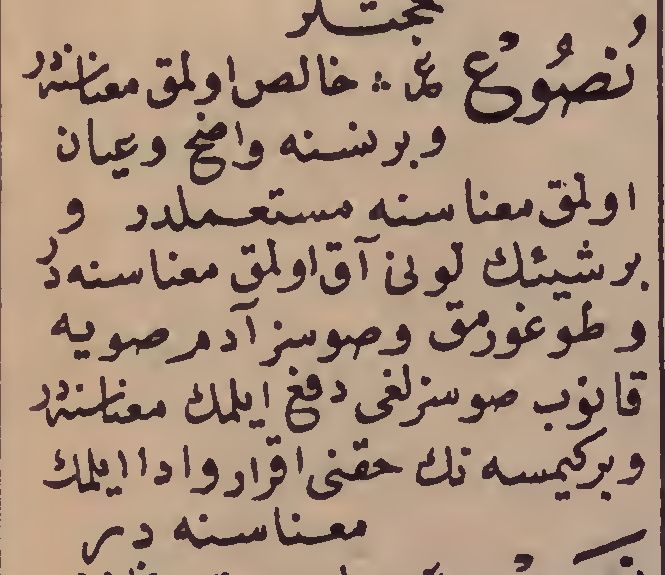 نُصُوع عم ؞ خالص اولمق معناسنه در
وبرنسنه واضح وعيان
اولمق معناسنه مستعملدر و
برشيئك لونى آق اولمق معناسنه در
وطوغورمق وصوسز آدم صويه
قانوب صوسزلغى دفع ايلمك معناسنه در
وبركيمسه نك حقنى اقرار وادا ايلمك
معناسنه در